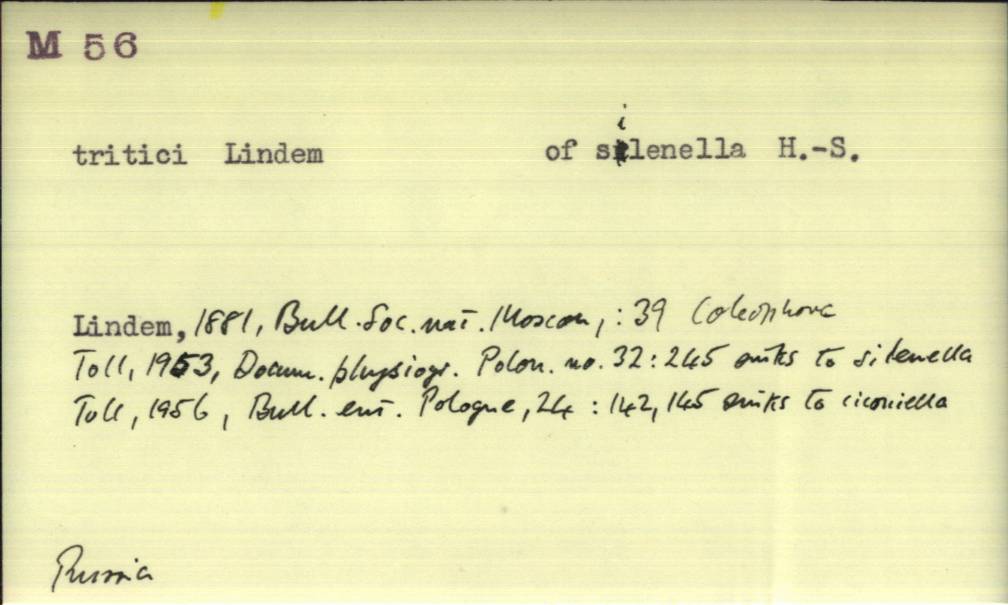 M 56
tritici Lindem of silenella H.-S.
Lindem, 1881, Bull. Soc. nat. Moscou, : 39 Coleophora
Toll, 1953, Docum. physiogr. Polon. no. 32 : 245 sinks to silenella
Toll, 1956, Bull. ent. Pologne, 24 : 142, 145 sinks to ciconiella
Russia